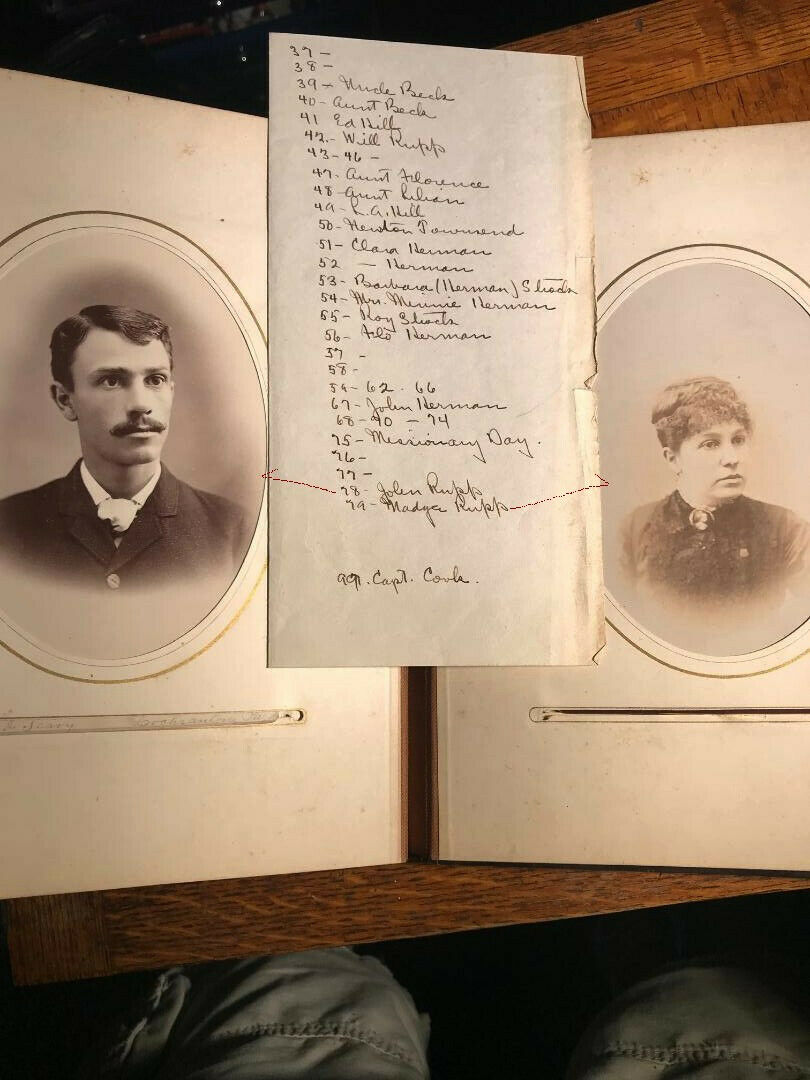 37 -
38 -
39 - Uncle Beck
40 - Aunt Beck
41 Ed Hill
42 - Will Rupp
43 - 46 -
47 - Aunt Florence
48 - Aunt Lilian
49 - L.A. Hill
50 - Newton Townsend
51 - Clara Herman
52 - Herman
53 - Barbara (Herman) Shock
54 - Mrs. Minnie Herman
55 - Roy Shock
56 - Herman
57 -
58 -
59 - 62 - 66
67 - John Herman
68 - 70 - 74
75 - Missionary Day.
76 -
77 -
78 - John Rupp
79 - Madge Rupp
99. Capt. Cook.